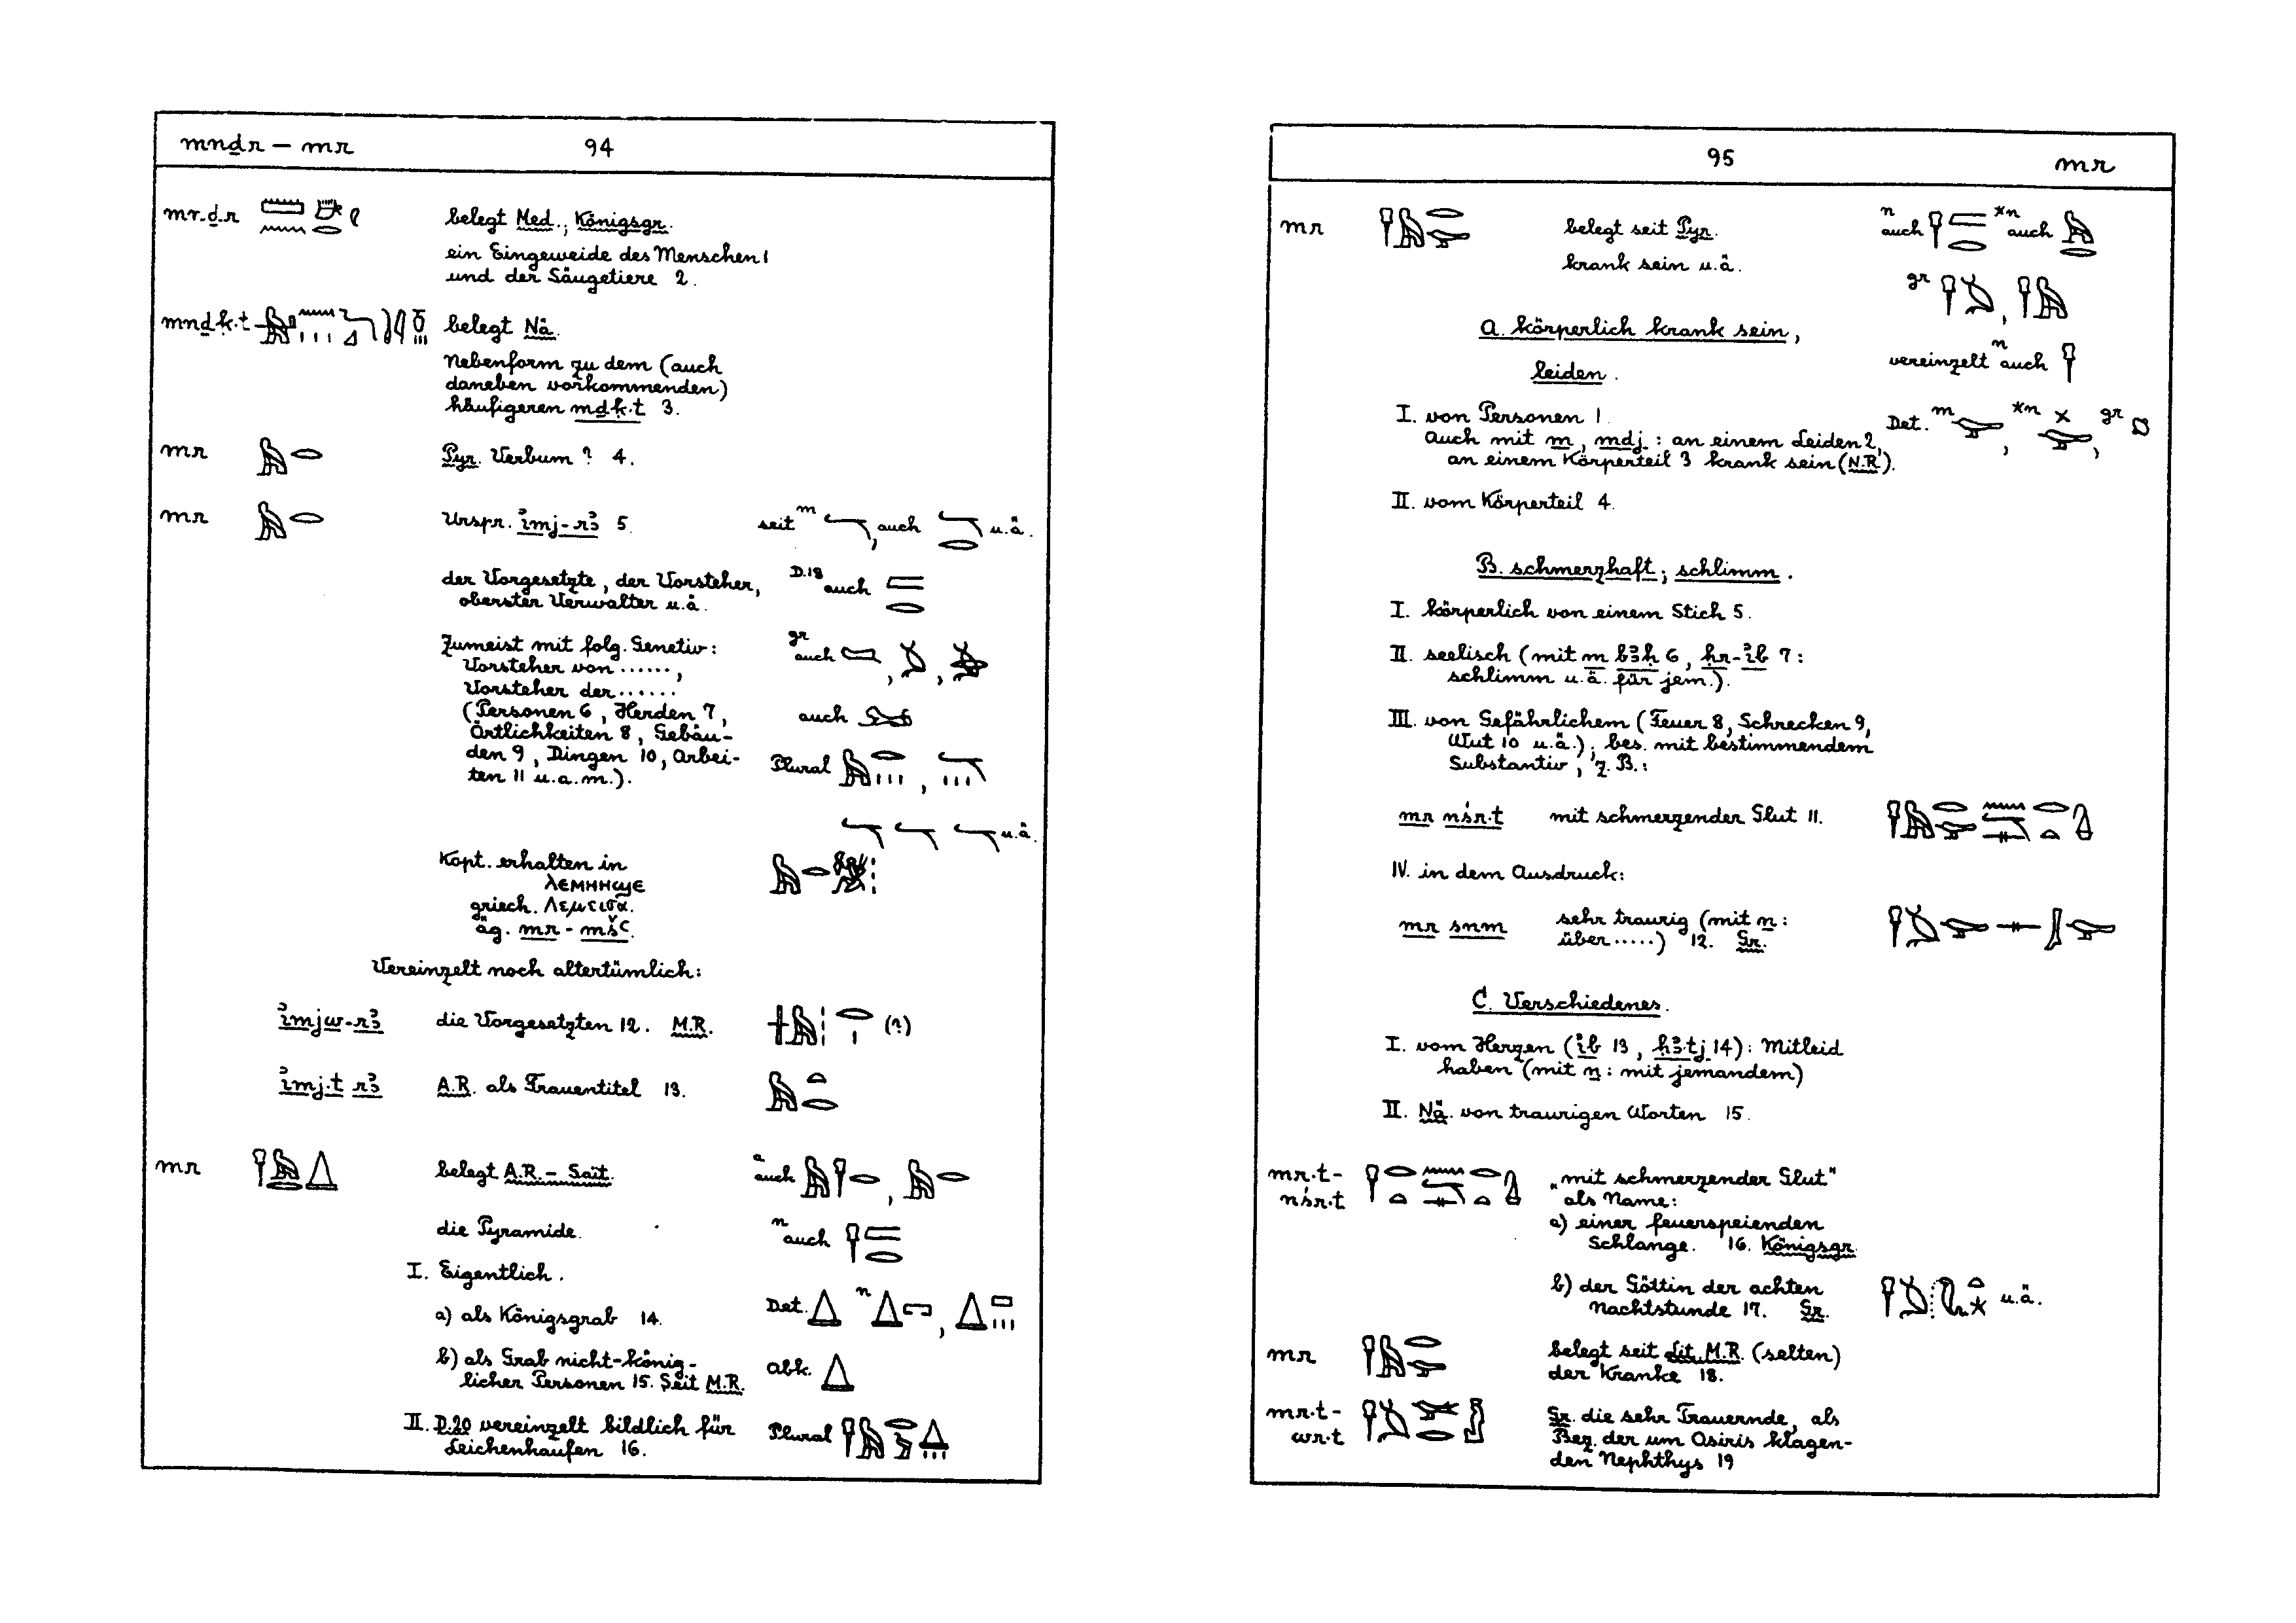 mnḏr – mr 94
mr.ḏ.r belegt Med., Königsgr.
ein Eingeweide des Menschen 1
und der Säugetiere 2.
mnḏḳ.t belegt Nä.
Nebenform zu dem (auch
daneben vorkommenden)
häufigeren mḏḳ.t 3.
mr Pyr. Verbum? 4.
mr Urspr. ỉmj-rꜣ 5. seit m , auch u.ä.
der Vorgesetzte, der Vorsteher, D.18 auch
oberster Verwalter u.ä.
Zumeist mit folg. Genetiv: gr auch , ,
Vorsteher von ......,
Vorsteher der ......
(Personen 6, Herden 7, auch
Örtlichkeiten 8, Gebäu-
den 9, Dingen 10, Arbei- Plural ,
ten 11 u.a.m.).
u.ä.
Kopt. erhalten in
λεμηηϣε
griech. Λεμεισα.
äg. mr-mšꜥ.
Vereinzelt noch altertümlich:
ỉmjw-rꜣ die Vorgesetzten 12. M.R. (?)
ỉmj.t rꜣ A.R. als Frauentitel 13.
mr belegt A.R. – Sait. a auch ,
die Pyramide. n auch
I. Eigentlich.
a) als Königsgrab 14. Det. n ,
b) als Grab nicht-könig- Abk.
licher Personen 15. Seit M.R.
II. D.20 vereinzelt bildlich für Plural
Leichenhaufen 16.
95 mr
mr belegt seit Pyr. n auch *n auch
krank sein u.ä. gr ,
A. körperlich krank sein,
leiden. vereinzelt n auch
I. von Personen 1. Det. m , *n , gr
Auch mit m, mdj: an einem Leiden 2,
an einem Körperteil 3 krank sein (N.R.).
II. vom Körperteil 4.
B. schmerzhaft; schlimm.
I. körperlich von einem Stich 5.
II. seelisch (mit m bꜣḥ 6, ḥr-ỉb 7:
schlimm u.ä. für jem.).
III. von Gefährlichem (Feuer 8, Schrecken 9,
Wut 10 u.ä.); bes. mit bestimmendem
Substantiv, z.B.:
mr nśr.t mit schmerzender Glut 11.
IV. in dem Ausdruck:
mr snm sehr traurig (mit n:
über .....) 12. Gr.
C. Verschiedenes.
I. vom Herzen (ỉb 13, ḥꜣ.tj 14): Mitleid
haben (mit n: mit jemandem)
II. Nä. von traurigen Worten 15.
mr.t- „mit schmerzender Glut"
nśr.t als Name:
a) einer feuerspeienden
Schlange. 16. Königsgr.
b) der Göttin der achten u.ä.
Nachtstunde 17. Gr.
mr belegt seit Lit. M.R. (selten)
der Kranke 18.
mr.t- Gr. die sehr Trauernde, als
wr.t Bez. der um Osiris klagen-
den Nephthys 19